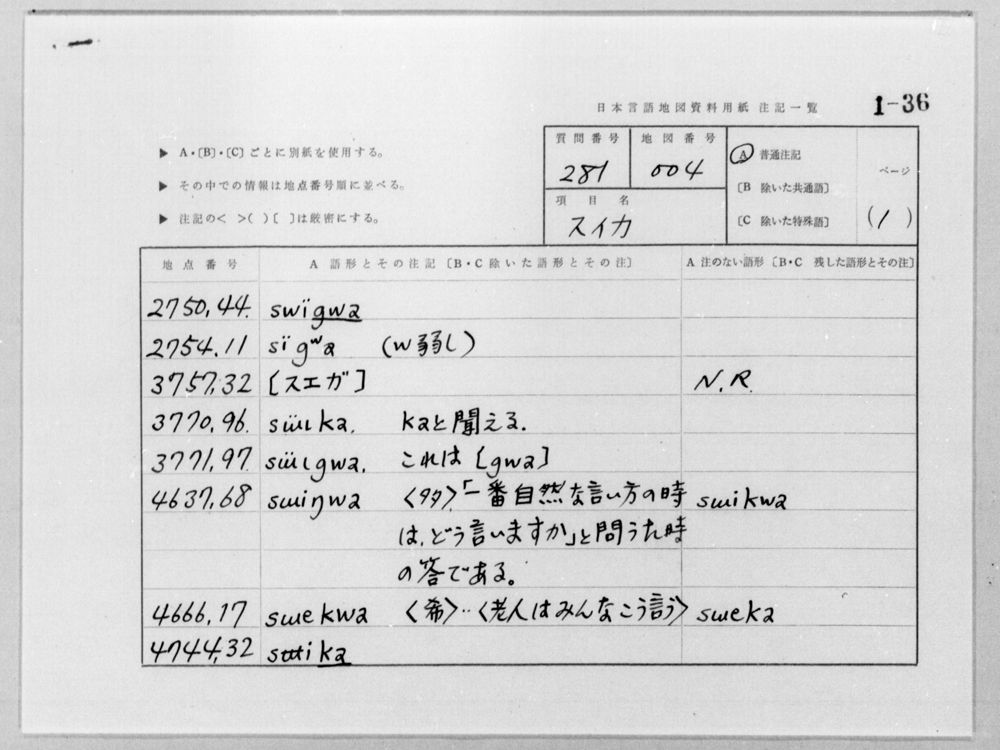 日本言語地図資料用紙 注記一覧 1-36
▶ A・〔B〕・〔C〕ごとに別紙を使用する。
▶ その中での情報は地点番号順に並べる。
▶ 注記の< >( )[ ]は厳密にする。
質問番号 地図番号
281 004
項目名
スイカ
A 普通注記
〔B 除いた共通語〕
〔C 除いた特殊語〕
ページ
(1)
地点番号 A 語形とその注記〔B・C 除いた語形とその注〕 A 注のない語形〔B・C 残した語形とその注〕
2750,44. swïgwa
2754.11 sïgʷa (w弱し)
3757,32 [スエガ] N.R.
3770,96. sɯ̈ɩka, kaと聞える.
3771,97. sɯ̈ɩgwa, これは [gwa]
4637,68 sɯiŋwa 〈多〉「一番自然な言い方の時 sɯikwa
は,どう言いますか」と問うた時
の答である。
4666,17 sɯekwa 〈希〉‥〈老人はみんなこう言う〉 sɯeka
4744,32 sɯika